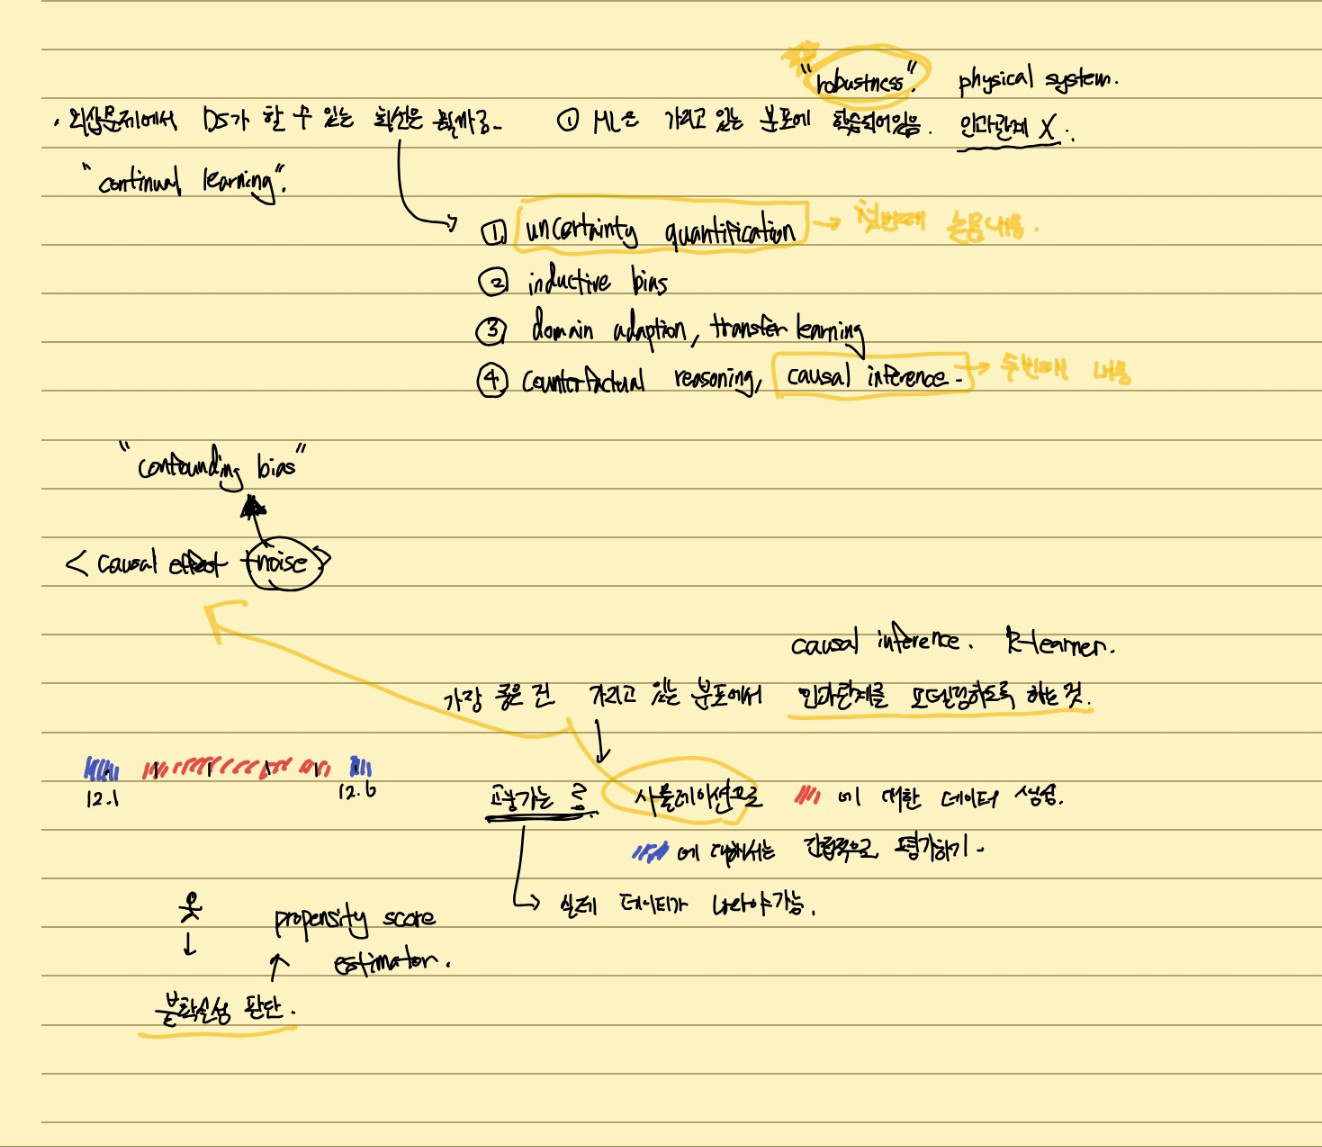 "robustness". physical system.
· 외삽문제에서 DS가 할 수 있는 최선은 뭘까?
① ML은 가지고 있는 분포에 학습되어있음. 인과관계 X.
"continual learning".
① uncertainty quantification → 첫번째 논문내용.
② inductive bias
③ domain adaption, transfer learning
④ counterfactual reasoning, causal inference. → 두번째 내용
"confounding bias"
< causal effect + noise >
causal inference. R-learner.
가장 좋은 건 가지고 있는 분포에서 인과관계를 모델링하도록 하는 것.
12.1 12.6
시뮬레이션으로 에 대한 데이터 생성.
에 대해서는 간접적으로 평가하기.
→ 실제 데이터가 나와야 가능.
propensity score
estimator.
불확실성 판단.